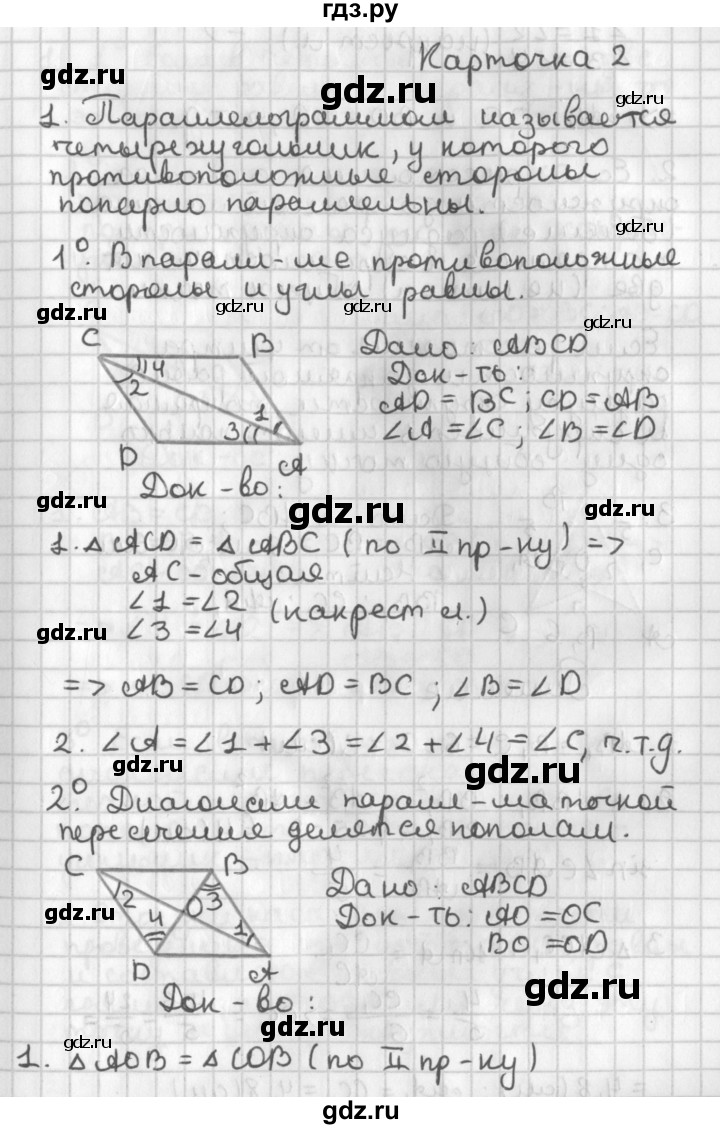 гдз.ру
Карточка 2
gdz.ru
gdz.ru
gdz.ru
1. Параллелограммом называется
четырехугольник, у которого
противоположные стороны
попарно параллельны.
gdz.ru
1⁰. В паралл-ме противоположные
стороны и углы равны.
gdz.ru gdz.ru gdz.ru
C B
4
2
1
3
D A
Дано: ABCD
Док-ть:
AD = BC; CD = AB
∠A = ∠C; ∠B = ∠D
Док-во:
gdz.ru gdz.ru gdz.ru
1. △ACD = △ABC (по II пр-ку) =>
AC - общая
∠1 = ∠2 (накрест л.)
∠3 = ∠4
gdz.ru gdz.ru
=> AB = CD; AD = BC; ∠B = ∠D
2. ∠A = ∠1 + ∠3 = ∠2 + ∠4 = ∠C, ч.т.д.
gdz.ru gdz.ru
2⁰. Диагонали паралл-ма точкой
пересечения делятся пополам.
C B
2
O 3
4
1
D A
gdz.ru gdz.ru
Дано: ABCD
Док-ть: AO = OC
BO = OD
Док-во:
gdz.ru
gdz.ru
gdz.ru
1. △AOB = △COB (по II пр-ку)
gdz.ru gdz.ru
gdz.ru